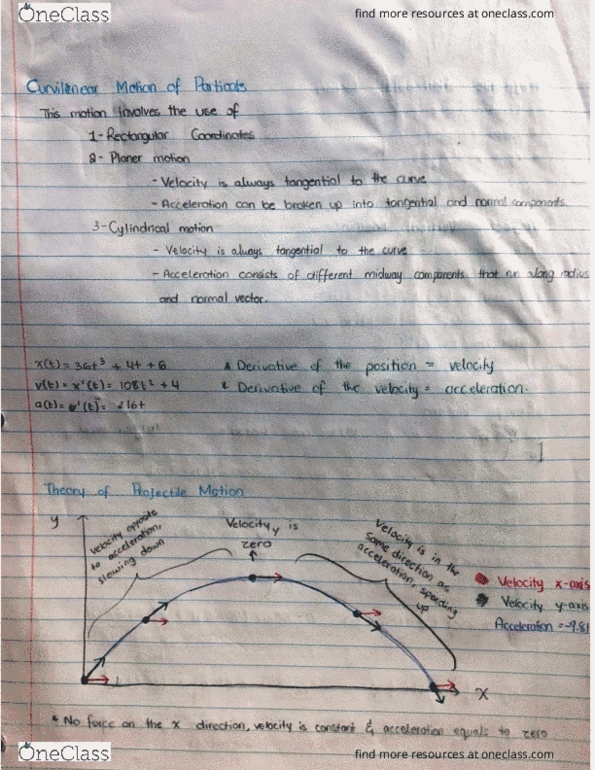 OneClass
find more resources at oneclass.com
Curvilenear Motion of Particals
This motion involves the use of
1-Rectangular Coordinates
2- Planer motion
- Velocity is always tangential to the curve
- Acceleration can be broken up into tangential and normal components.
3-Cylindrical motion
- Velocity is always tangential to the curve
- Acceleration consists of different midway components that run along radius
and normal vector.
x(t) = 36t³ + 4t + 6
* Derivative of the position = velocity
v(t) = x'(t) = 108t² + 4
* Derivative of the velocity = acceleration.
a(t) = v'(t) = 216t
1
Theory of Projectile Motion
y
Velocity opposite
to acceleration,
slowing down
Velocity y is
zero
Velocity is in the
same direction as
acceleration, speeding
up
Velocity x-axis
Velocity y-axis
Acceleration = -9.81
x
* No force on the x direction, velocity is constant & acceleration equals to zero
OneClass
find more resources at oneclass.com